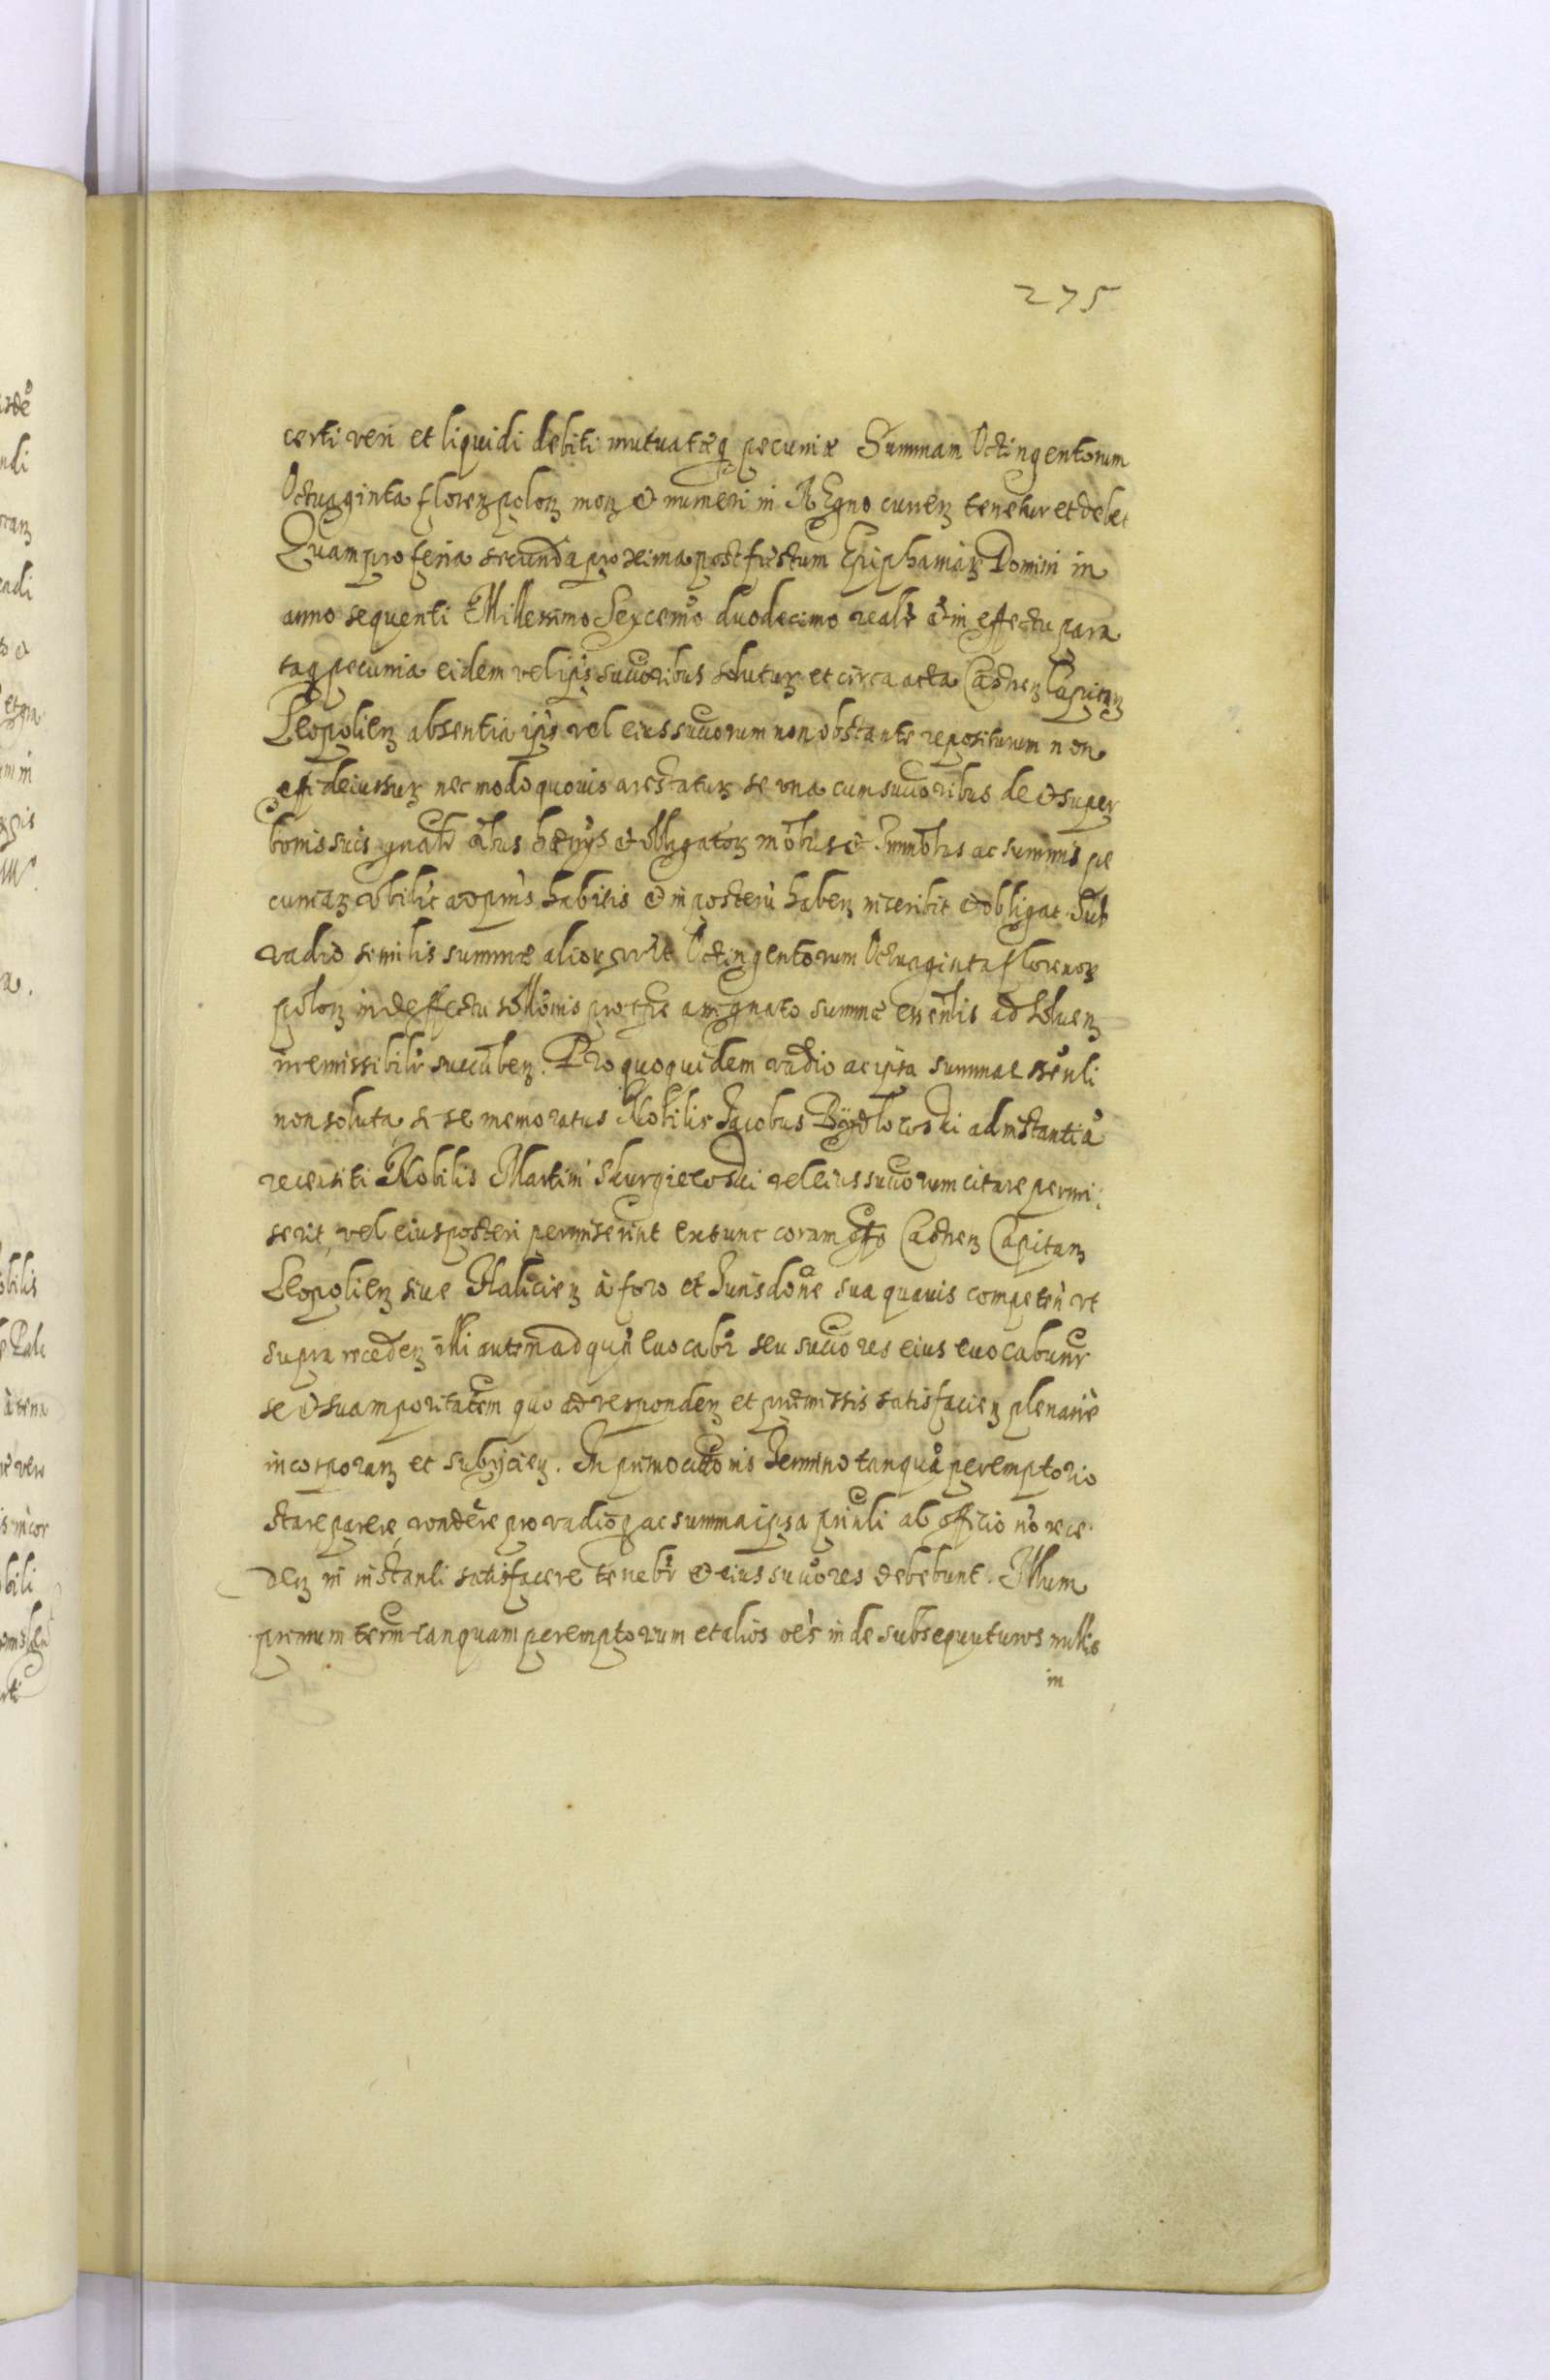 275
certi veri et liquidi debiti mutuatæq pecuniæ Summam Octingentorum
Octuaginta florenz polonz monz et numeri in REgno currenz tenetur et debet
Quam pro feria secunda proxima post festum Epiphaniarz Domini in
anno sequenti Millesimo Sexcemo duodecimo realr et in effectu para
taq pecunia eidem vel ipis succoribus soluturz et circa acta Castrenz Capitanz
Leopolienz absentia ipis vel eius succorum non obstante repositurum non
effideiussurz nec modo quovis arestaturz se una cum succoribus de et super
bonis suis gnalr oibus hærys et obligatorz mobus et Immobus ac summis pe
cuniarz ubilit adpns habitis et in posterù habenz inscribit et obligat. Sub
vadio similis summæ aliorz Octingentorum Octuaginta florenorz
polonz in deffectu sollonis pro tpre assignato summæ essenlis ad soluenz
irremissibilr succubenz. Pro quo quidem vadio ac ipsa summae ssenli
non soluta si se memoratus Nobilis Jacobus Bydlowski ad instantiã
recensiti Nobilis Martini Skurgiewski vel eius succorum citare permi:
serit, vel eius posteri permiserint extunc coram Castrenz Capitanz
Leopolienz siue Halicienz à foro et Jurisdone sua quavis competen vt
supra recedenz illi autem ad quã euocabr seu succores eius euocabuntr
se et suam poritatem quo ad respondenz et præmissis satisfacienz plenariè
incorporanz et subijcienz. In primo cittonis Termino tanquã peremptorio
stare parere, rondere pro vadioq ac summa ipsa prinli ab officio nõ rece
denz in instanti satisfacere tenebr et eius succores debebunt. Illum
primum term tanquam peremptorium et alios oes inde subsequuturos nullis
in